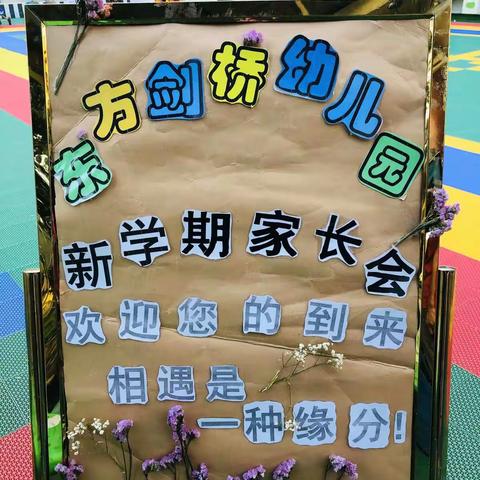 东方剑桥幼儿园
新学期家长会
欢迎您的到来
相遇是
一种缘分!